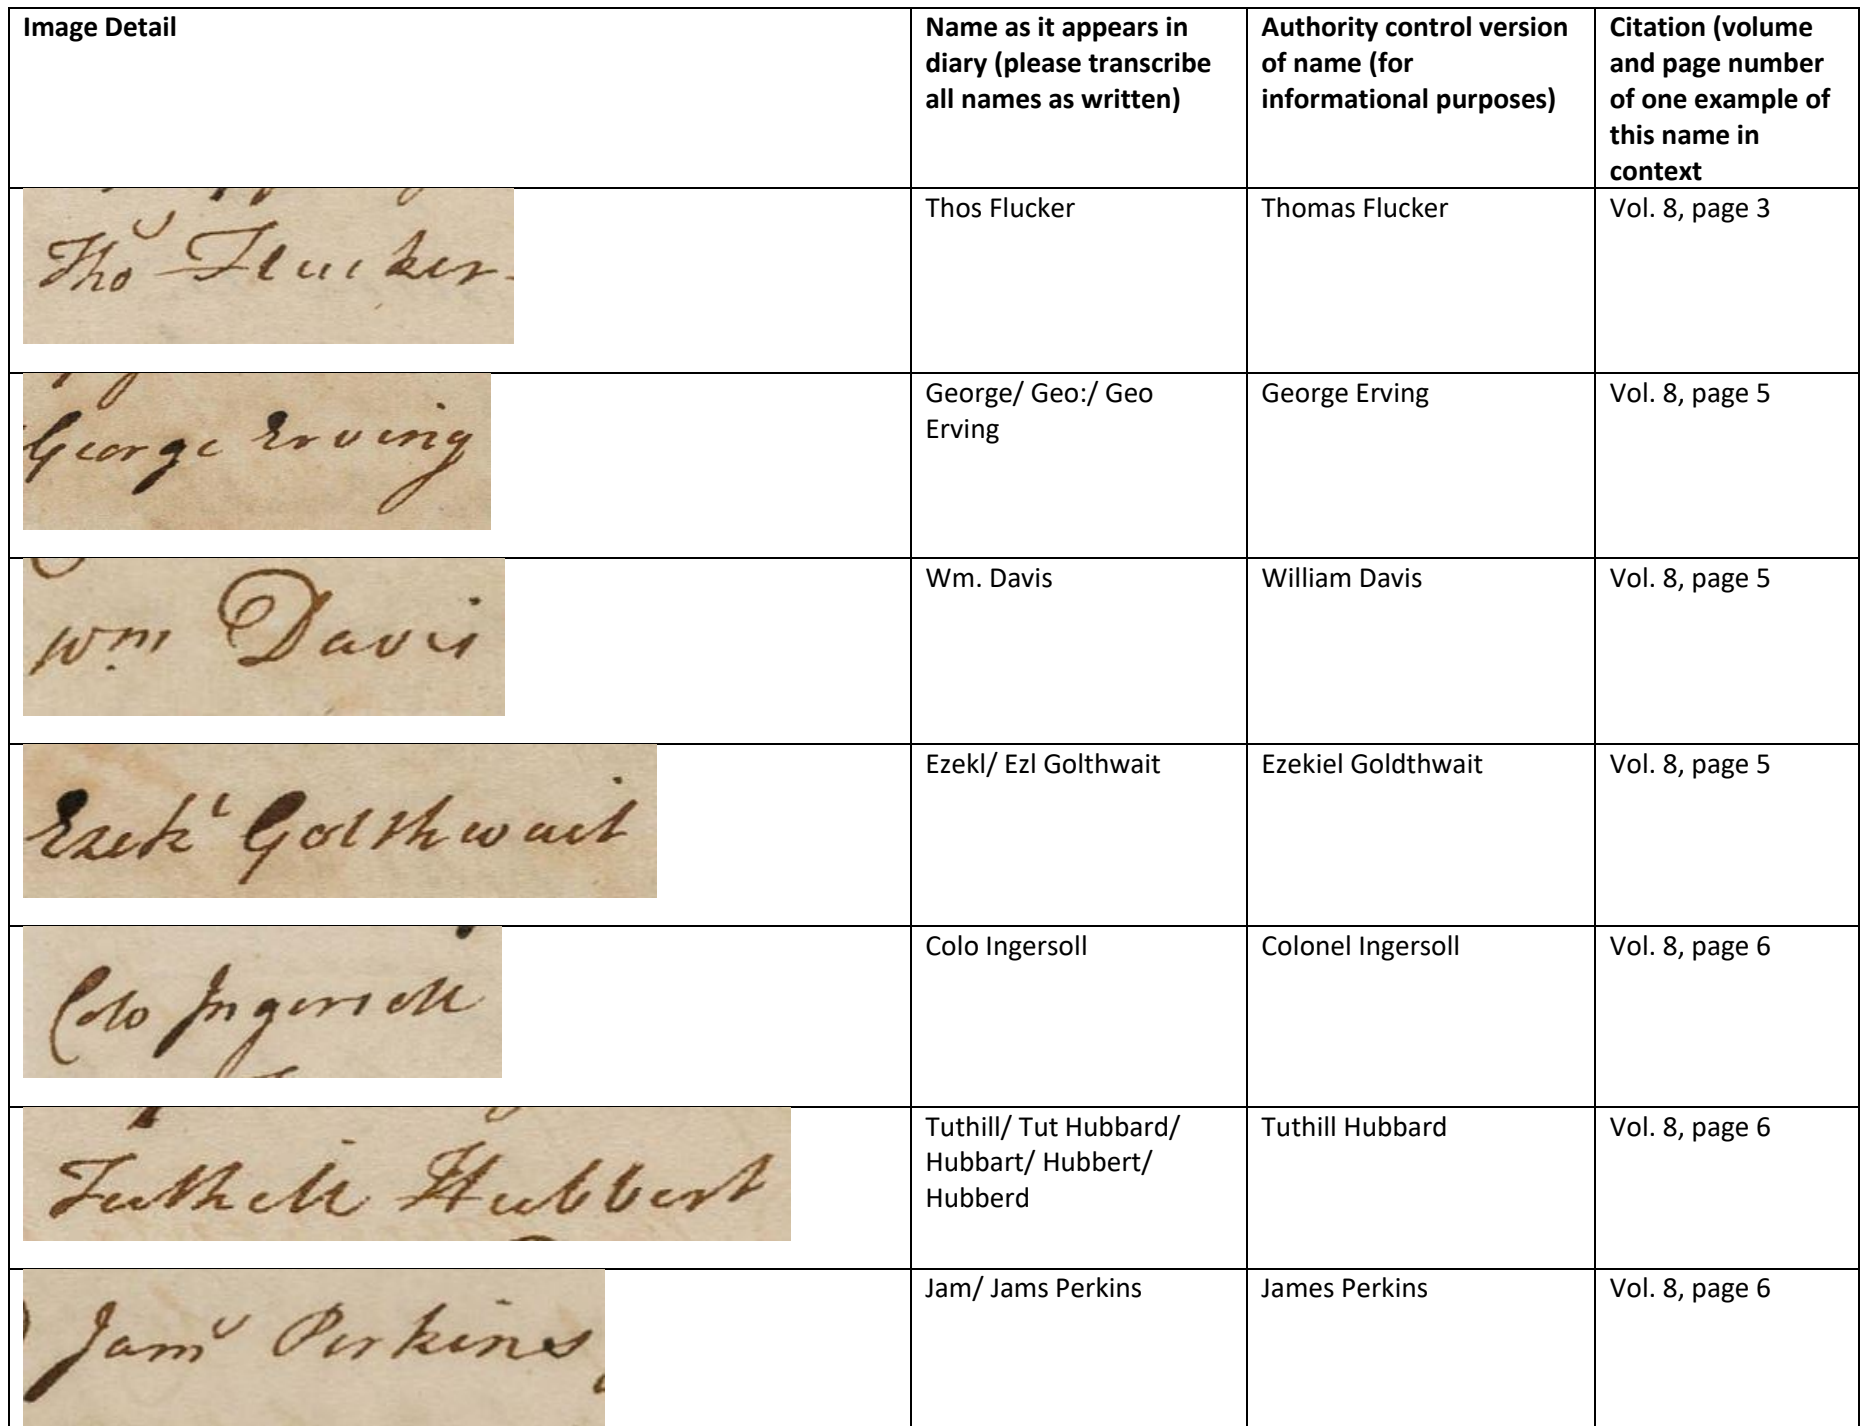 Image Detail
Name as it appears in
diary (please transcribe
all names as written)
Authority control version
of name (for
informational purposes)
Citation (volume
and page number
of one example of
this name in
context
Thos Flucker
Thos Flucker
Thomas Flucker
Vol. 8, page 3
George Erving
George/ Geo:/ Geo
Erving
George Erving
Vol. 8, page 5
Wm Davis
Wm. Davis
William Davis
Vol. 8, page 5
Ezekl Golthwait
Ezekl/ Ezl Golthwait
Ezekiel Goldthwait
Vol. 8, page 5
Colo Ingersoll
Colo Ingersoll
Colonel Ingersoll
Vol. 8, page 6
Tuthill Hubbert
Tuthill/ Tut Hubbard/
Hubbart/ Hubbert/
Hubberd
Tuthill Hubbard
Vol. 8, page 6
Jams Perkins
Jam/ Jams Perkins
James Perkins
Vol. 8, page 6